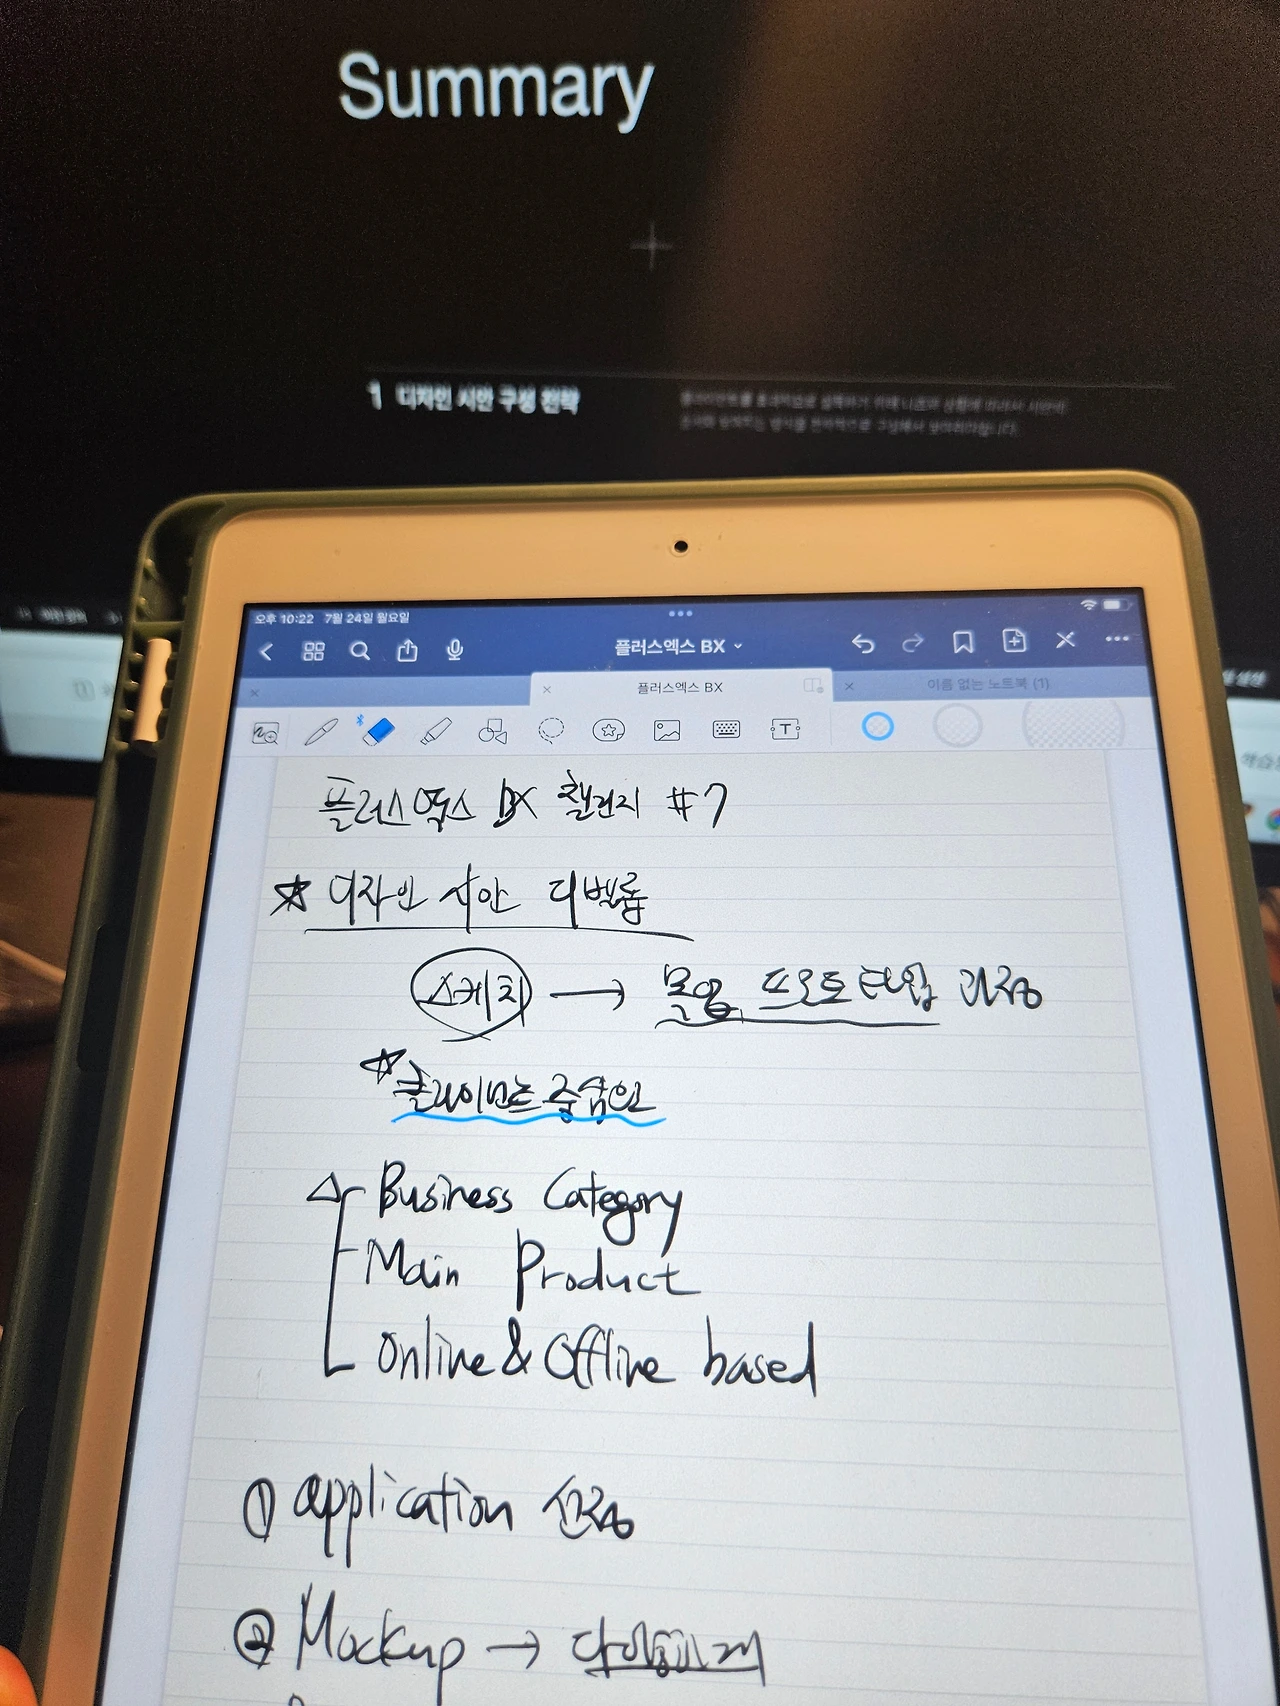 Summary
1 디자인 시안 구성 전략
오후 10:22 7월 24일 월요일
플러스엑스 BX
플러스엑스 BX
이름 없는 노트북 (1)
T
플러스엑스 BX 챌린지 #7
디자인 시안 디벨롭
스케치 → 목업 프로토타입 과정
클라이언트 중심인
Business Category
Main Product
Online & Offline based
① application 선정
② Mockup → 다양하게